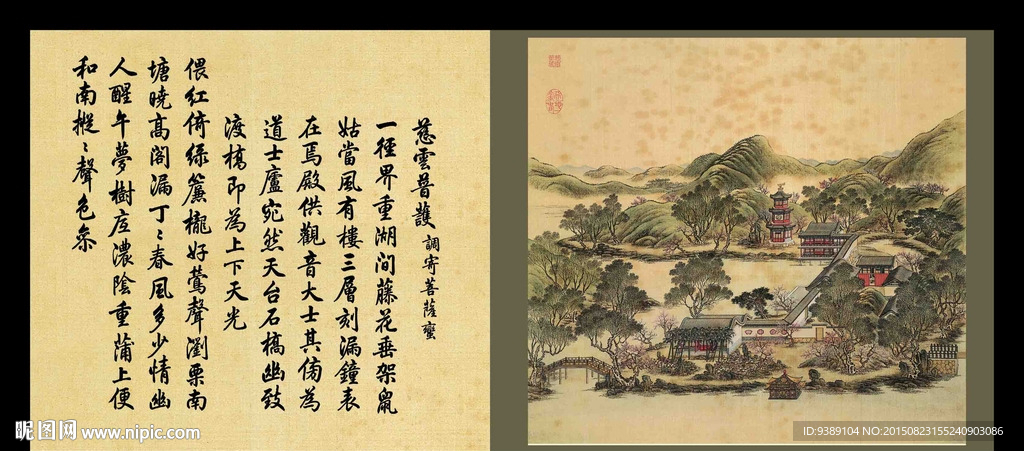 慈雲普護 調寄菩薩蠻
一徑界重湖間藤花垂架鼠
姑當風有樓三層刻漏鐘表
在焉殿供觀音大士其傍為
道士廬宛然天台石橋幽致
渡橋即為上下天光
偎紅倚綠簾櫳好鶯聲瀏栗南
塘曉高閣漏丁〻春風多少情幽
人醒午夢樹底濃陰重蒲上便
和南摐〻聲色參
昵图网 www.nipic.com
ID:9389104 NO:20150823155240903086